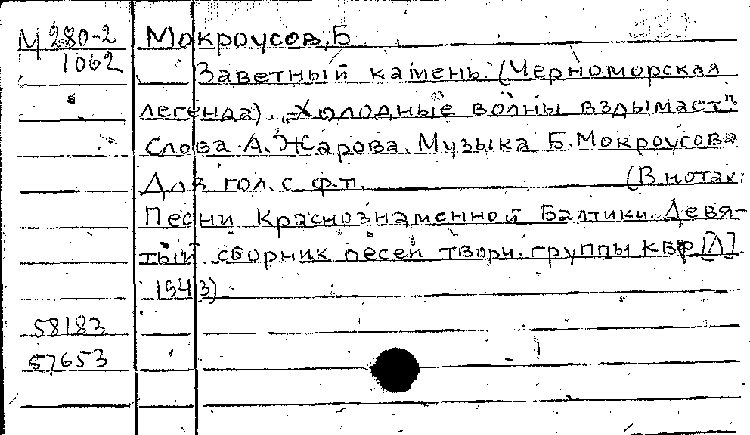 М 280-2 Мокроусов, Б.
1062
Заветный камень. (Черноморская
легенда). „Холодные волны вздымает".
Слова А. Жарова. Музыка Б. Мокроусова
Для гол. с ф.-п. (В нотах:
Песни Краснознаменной Балтики. Девя-
тый сборник песен творч. группы КБФ [Л]
1943)
58183
57653